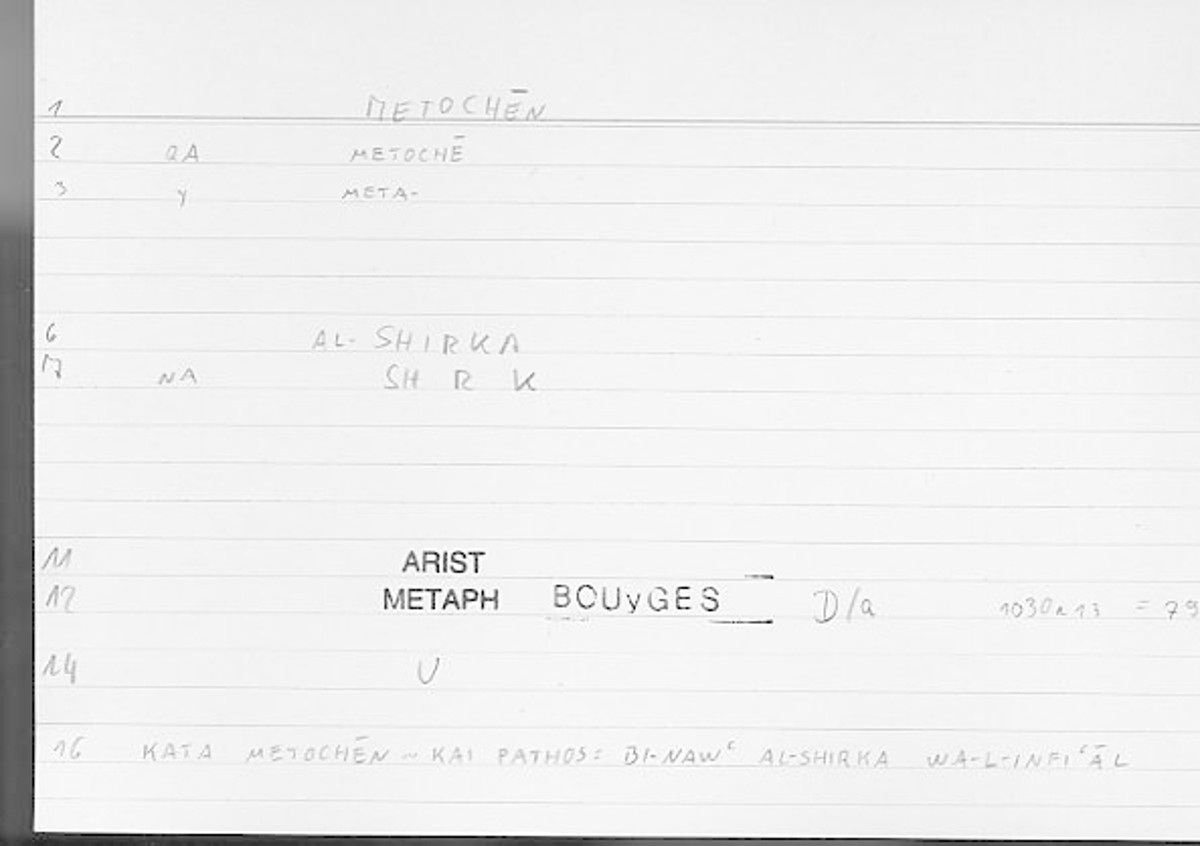 1 METOCHĒN
2 QA METOCHĒ
3 Y META-
6 AL- SHIRKA
7 NA SH R K
11 ARIST
12 METAPH BOUYGES D/a 1030a13 = 79
14 U
16 KATA METOCHĒN ~ KAI PATHOS: BI-NAWʿ AL-SHIRKA WA-L-INFIʿĀL